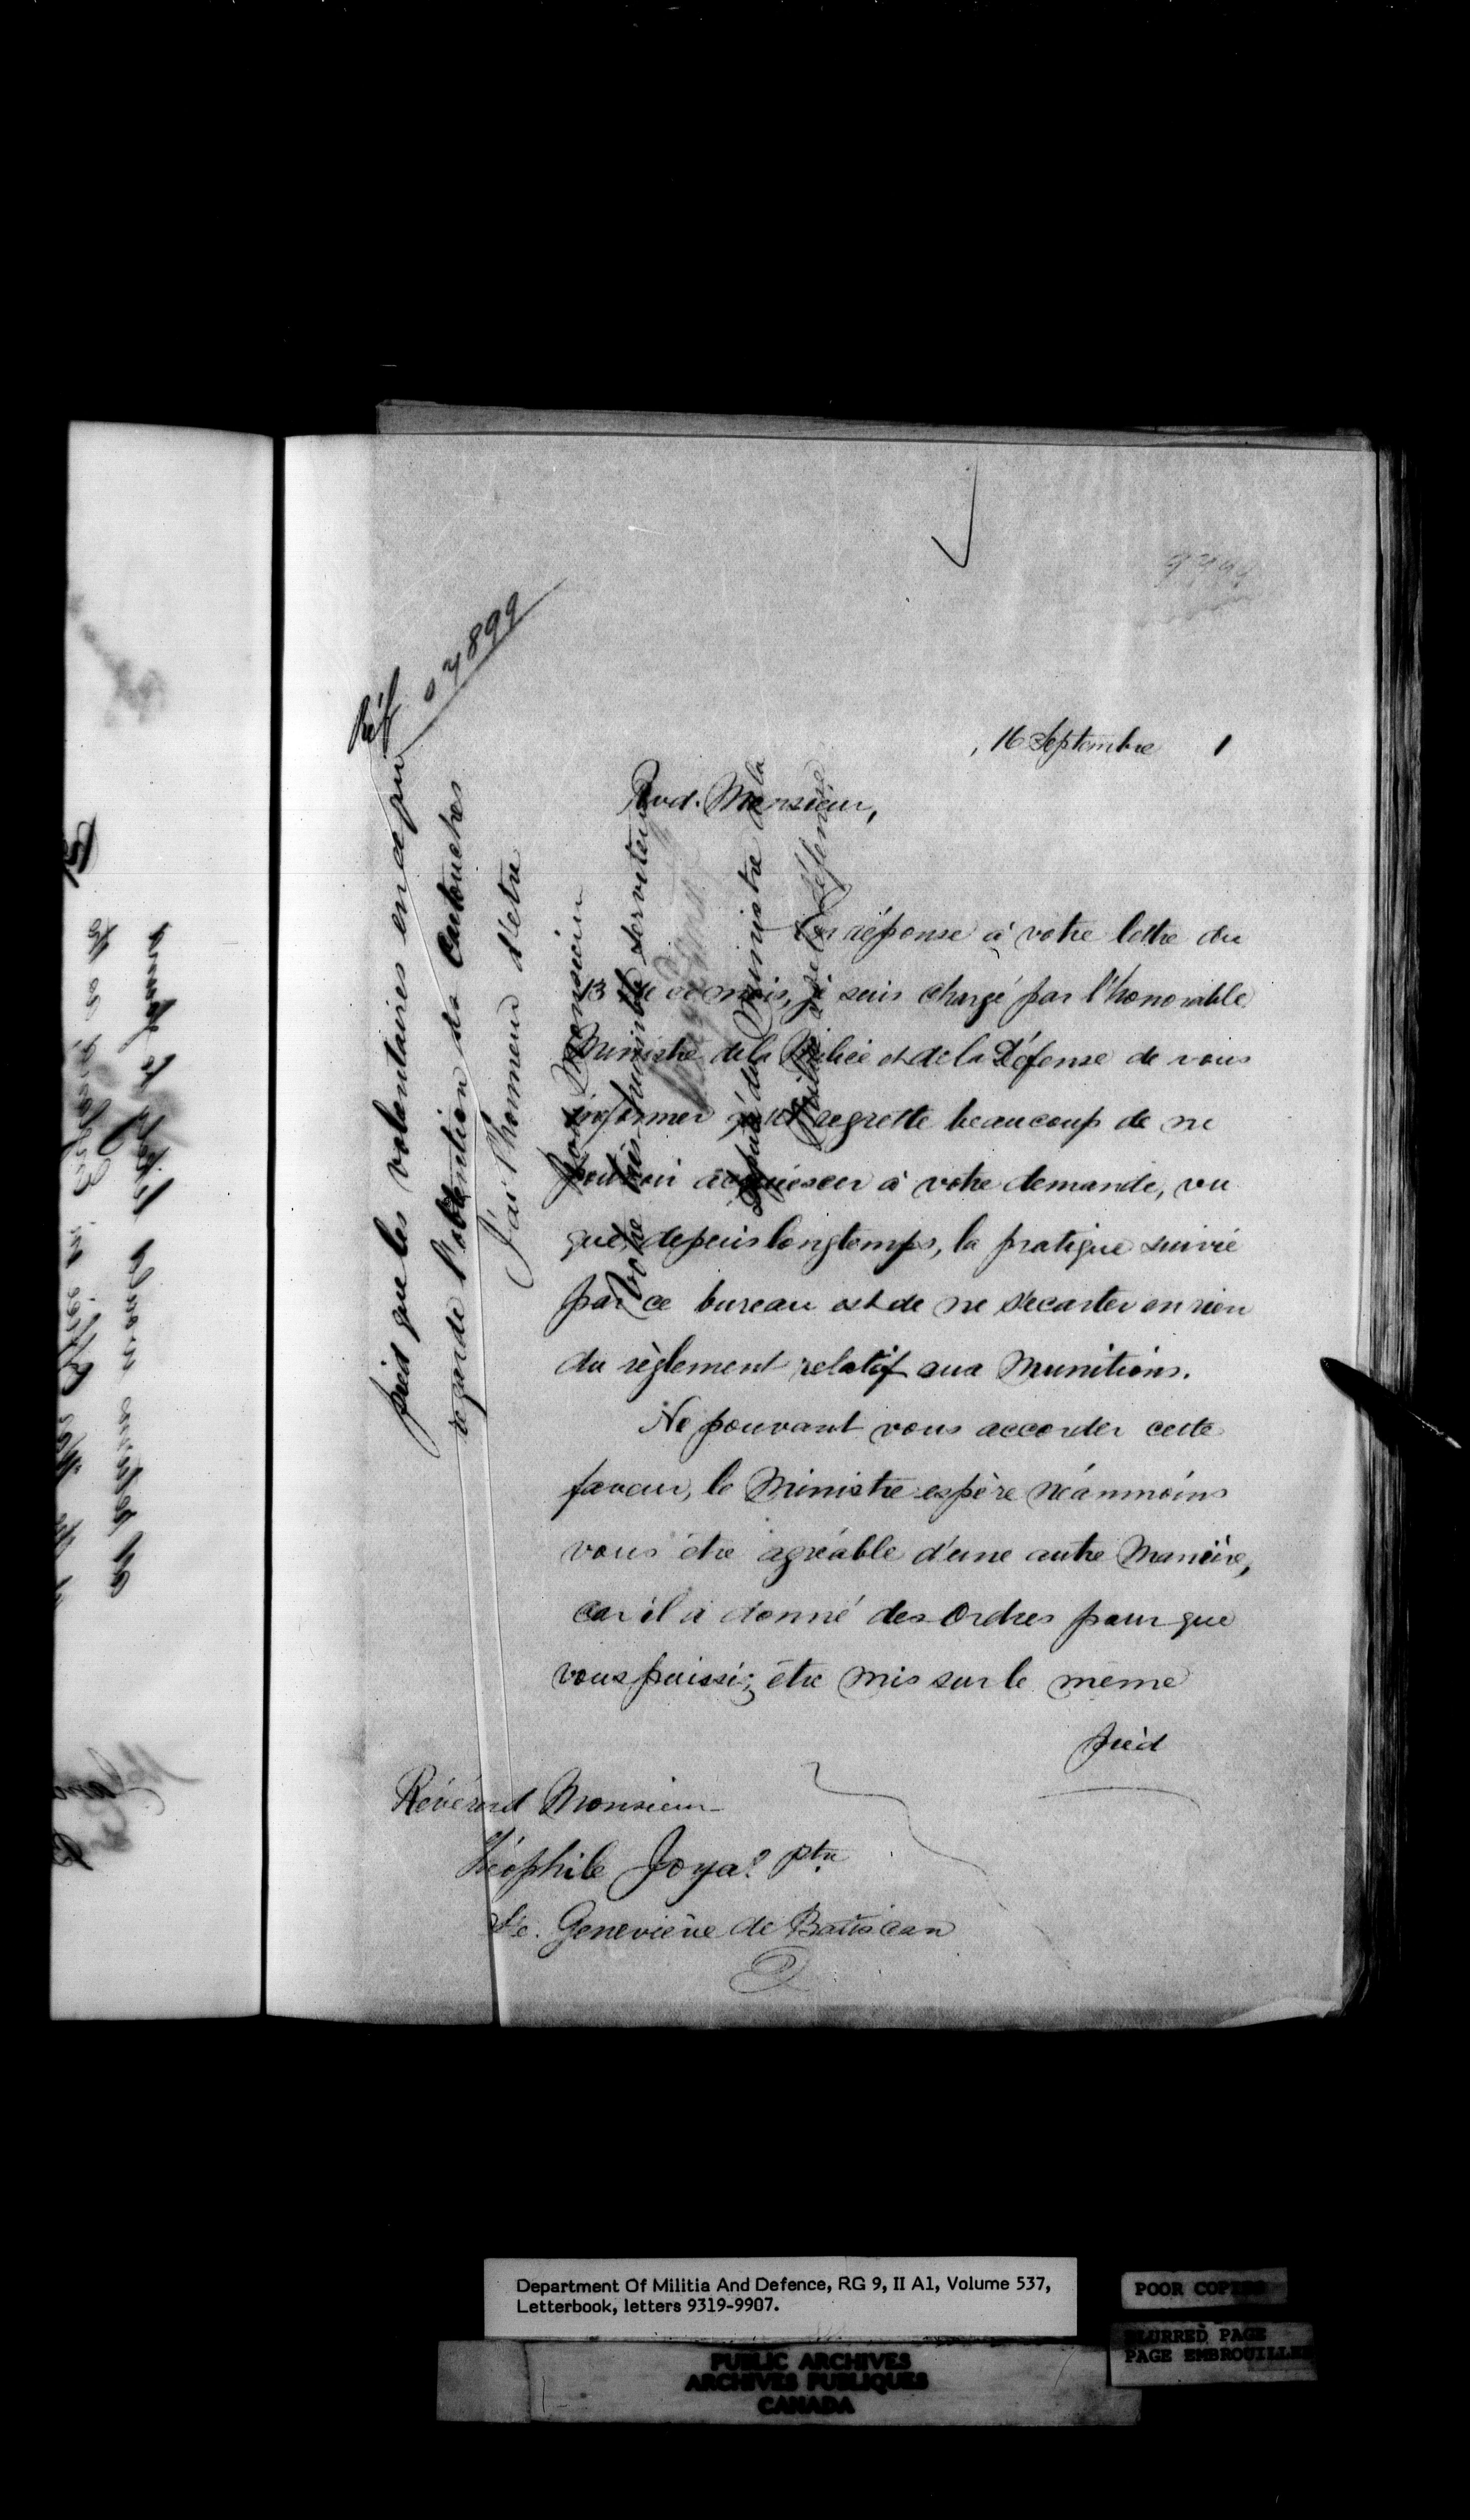 9799
Réf 07899
, 16 Septembre 1
Revd. Monsieur,
En réponse à votre lettre du
13 de ce mois, je suis chargé par l'honorable
Ministre de la Milice et de la Défense de vous
informer qu'il regrette beaucoup de ne
pouvoir acquiescer à votre demande, vu
que, depuis longtemps, la pratique suivie
par ce bureau est de ne s'écarter en rien
du règlement relatif aux Munitions.
Ne pouvant vous accorder cette
faveur, le Ministre espère néanmoins
vous être agréable d'une autre Manière,
car il a donné des Ordres pour que
vous puissiez être mis sur le même
pied
Révérend Monsieur
Théophile Joyal ptre
Ste. Geneviève de Batiscan
pied que les volontaires en ce qui
regarde l'obtention des Cartouches
J'ai l'honneur d'être
Monsieur
Votre très humble serviteur
Député du Ministre de la
Milice et de la Défense
Department Of Militia And Defence, RG 9, II A1, Volume 537,
Letterbook, letters 9319-9907.
POOR COPIES
BLURRED PAGE
PAGE EMBROUILLEE
PUBLIC ARCHIVES
ARCHIVES PUBLIQUES
CANADA